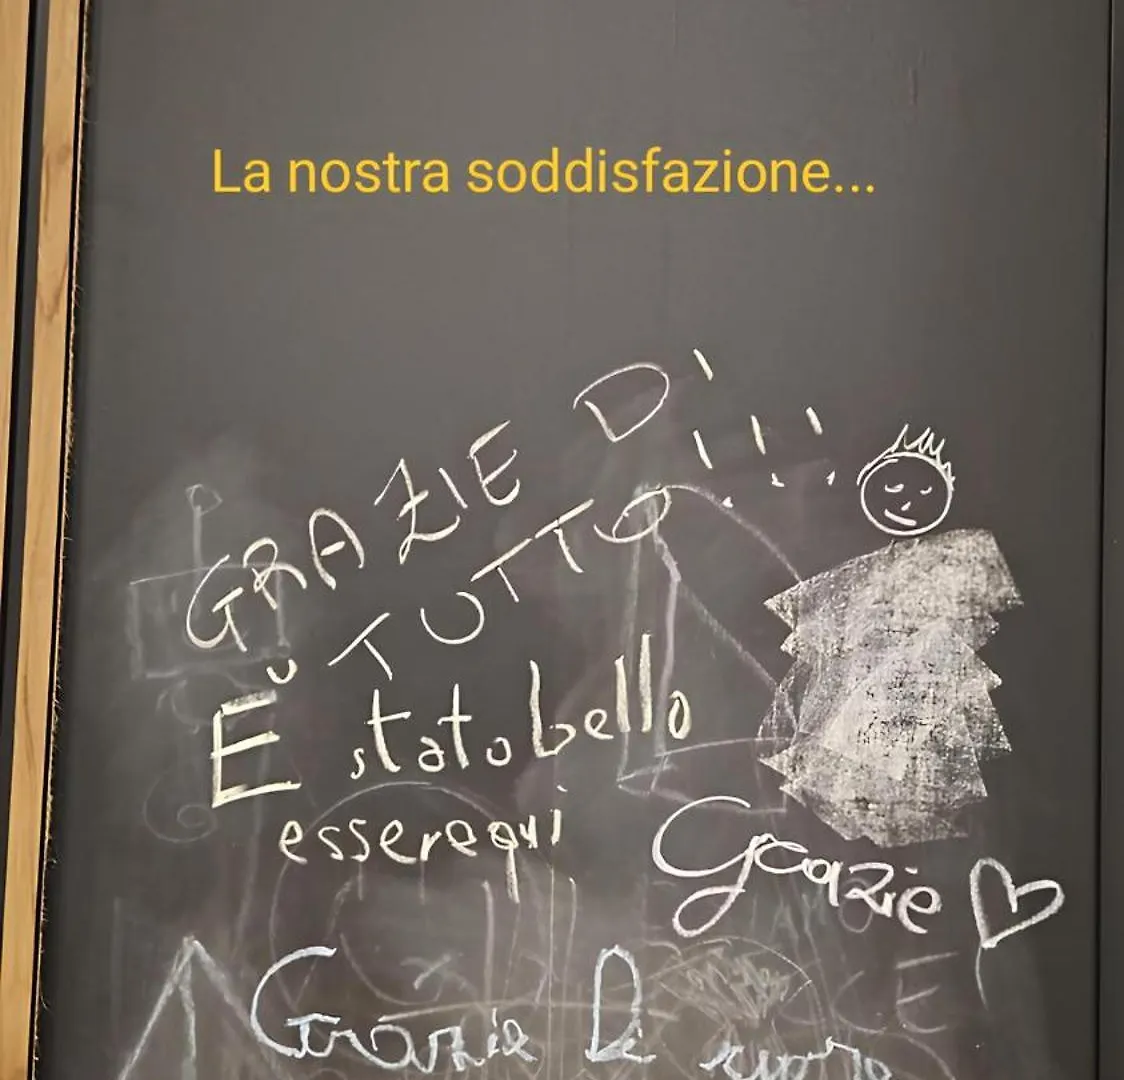 La nostra soddisfazione...
GRAZIE DI
TUTTO!!!
È stato bello
essere qui
Grazie
Grazie di cuore